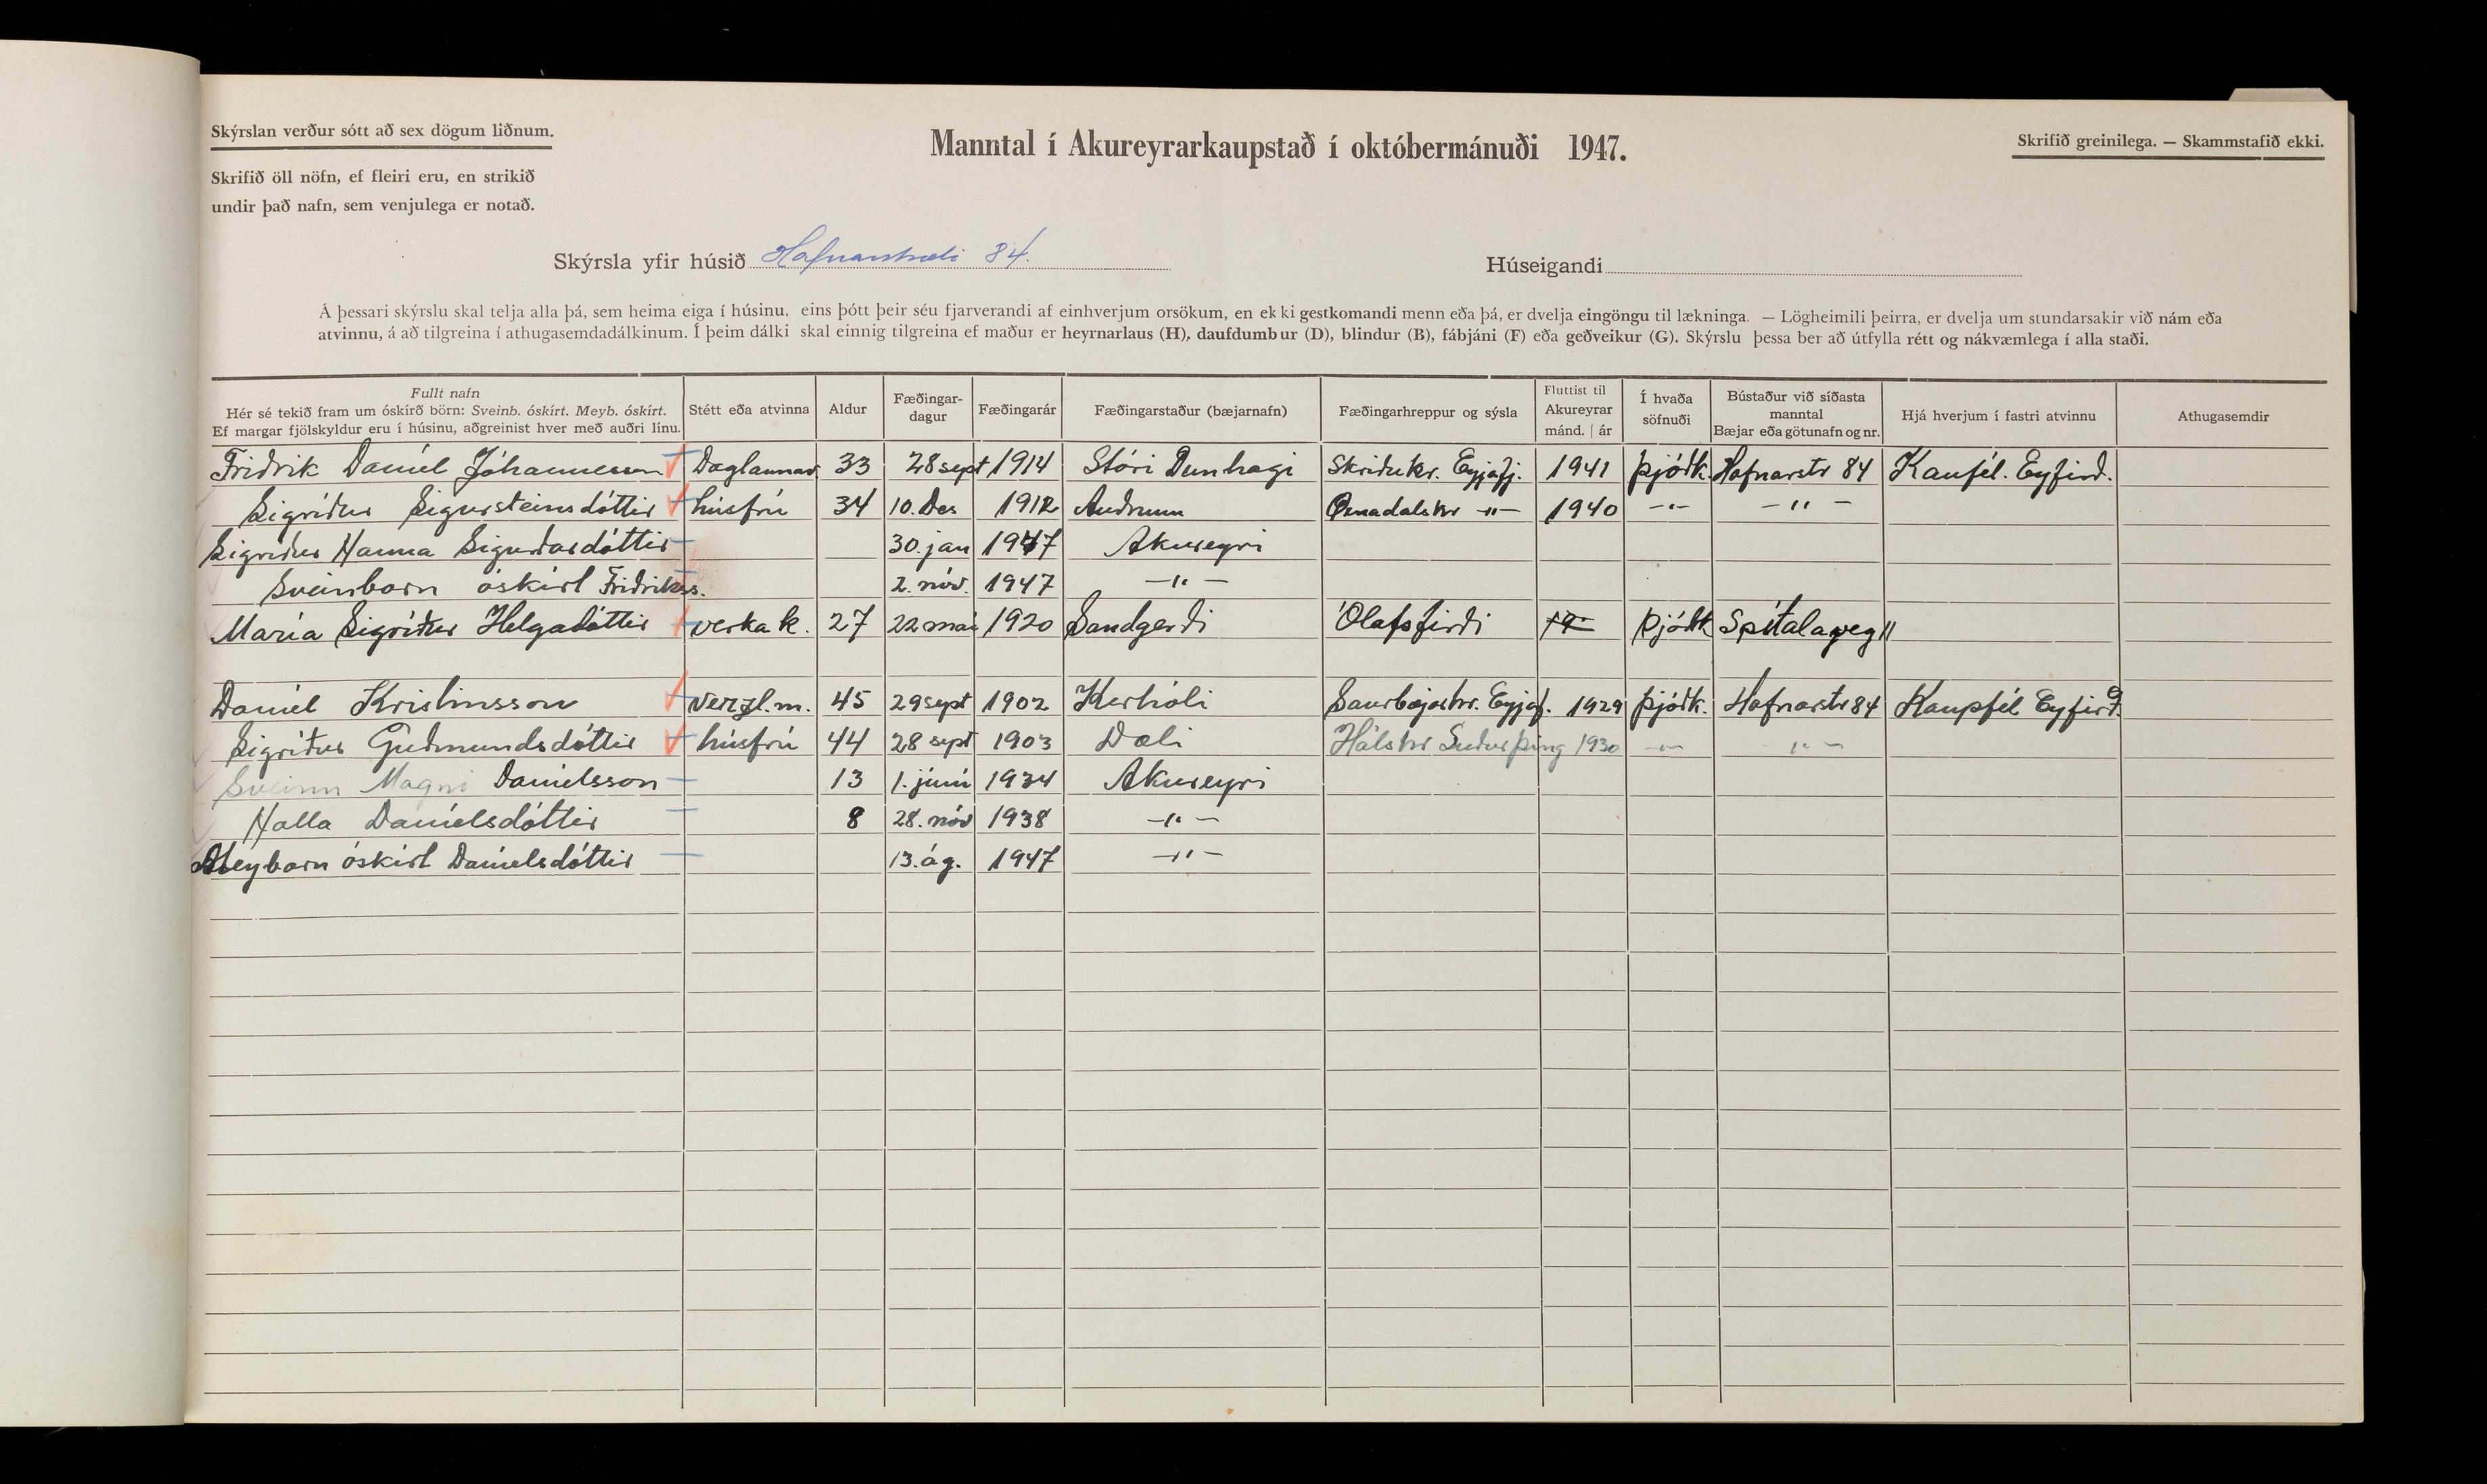 Skýrslan verður sótt að sex dögum liðnum.
Skrifið öll nöfn, ef fleiri eru, en strikið
undir það nafn, sem venjulega er notað.
Manntal í Akureyrarkaupstað í októbermánuði 1947.
Skrifið greinilega. — Skammstafið ekki.
Skýrsla yfir húsið Hafnarstræti 84.
Húseigandi
Á þessari skýrslu skal telja alla þá, sem heima eiga í húsinu, eins þótt þeir séu fjarverandi af einhverjum orsökum, en ekki gestkomandi menn eða þá, er dvelja eingöngu til lækninga. — Lögheimili þeirra, er dvelja um stundarsakir við nám eða
atvinnu, á að tilgreina í athugasemdadálkinum. Í þeim dálki skal einnig tilgreina ef maður er heyrnarlaus (H), daufdumbur (D), blindur (B), fábjáni (F) eða geðveikur (G). Skýrslu þessa ber að útfylla rétt og nákvæmlega í alla staði.
Fullt nafn
Hér sé tekið fram um óskírð börn: Sveinb. óskírt. Meyb. óskírt.
Ef margar fjölskyldur eru í húsinu, aðgreinist hver með auðri línu.
Stétt eða atvinna
Aldur
Fæðingar-
dagur
Fæðingarár
Fæðingarstaður (bæjarnafn)
Fæðingarhreppur og sýsla
Fluttist til
Akureyrar
mánd. | ár
Í hvaða
söfnuði
Bústaður við síðasta
manntal
Bæjar eða götunafn og nr.
Hjá hverjum í fastri atvinnu
Athugasemdir
Friðrik Daníel Jóhannesson Daglaunam. 33 28 sept 1914 Stóri Dunhagi Skriðuhr. Eyjafj. 1941 þjóðk. Hafnarstr 84 Kaupfél. Eyfirð.
Sigríður Sigursteinsdóttir húsfrú 34 10. Des 1912 Auðnum Öxnadalshr —"— 1940 —"— —"—
Sigríður Hanna Sigurðardóttir 30. jan 1947 Akureyri
Sveinbarn óskírt Friðrikss. 2. nóv. 1947 —"—
María Sigríður Helgadóttir verkak. 27 22 maí 1920 Sandgerði Ólafsfirði þjóðk Spítalaveg 11
Daníel Kristinsson verzl.m. 45 29 sept 1902 Kerhóli Saurbæjarhr. Eyjaf. 1929 þjóðk. Hafnarstr 84 Kaupfél Eyfirð.
Sigríður Guðmundsdóttir húsfrú 44 28 sept 1903 Dæli Hálshr Suður þing 1930 —"— —"—
Sveinn Magni Daníelsson 13 1. júní 1934 Akureyri
Halla Daníelsdóttir 8 28. nóv 1938 —"—
Meybarn óskírt Daníelsdóttir 13. ág. 1947 —"—